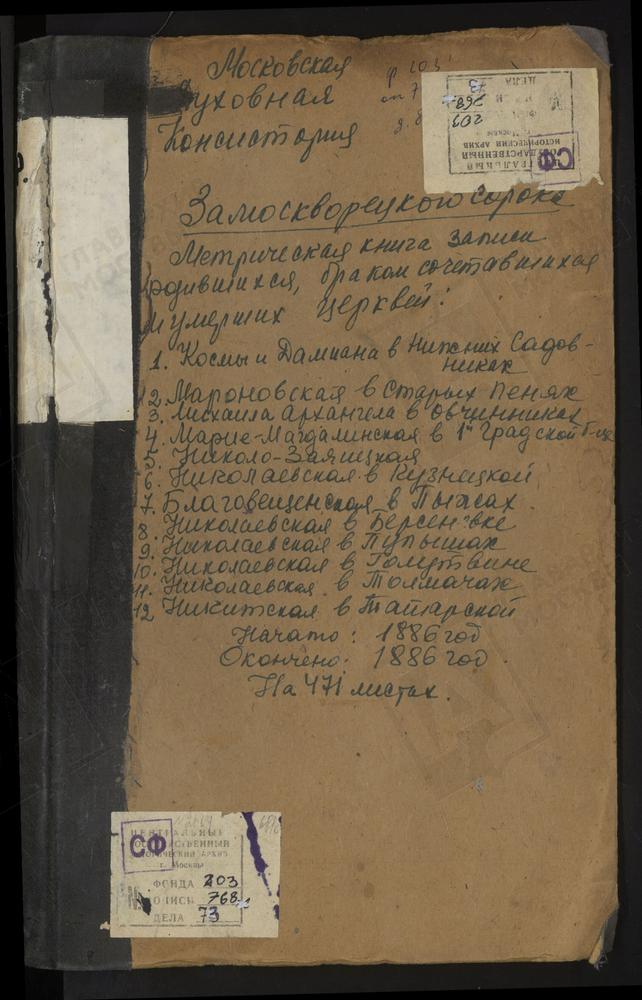 Московская
Духовная
Консистория
ф 203
Замоскворецкого сорока
Метрическая книга записи
родившихся, браком сочетавшихся
и умерших церквей:
1. Космы и Дамиана в Нижних Садов-
никах
2. Мароновская в Старых Пенях
3. Михаила Архангела в Овчинниках
4. Марие-Магдалинская в 1й Градской б-це
5. Николо-Заяицкая
6. Николаевская в Кузнецкой
7. Благовещенская в Пыжах
8. Николаевская в Берсеневке
9. Николаевская в Пупышах
10. Николаевская в Голутвине
11. Николаевская в Толмачах
12 Никитская в Татарской
Начато: 1886 год
Окончено: 1886 год
На 471 листах.
СФ
ЦЕНТРАЛЬНЫЙ
ГОСУДАРСТВЕННЫЙ
ИСТОРИЧЕСКИЙ АРХИВ
г. Москвы
ФОНДА 203
ОПИСИ 768
ДЕЛА 73
СФ
ИСТОРИЧЕСКИЙ АРХИВ
203